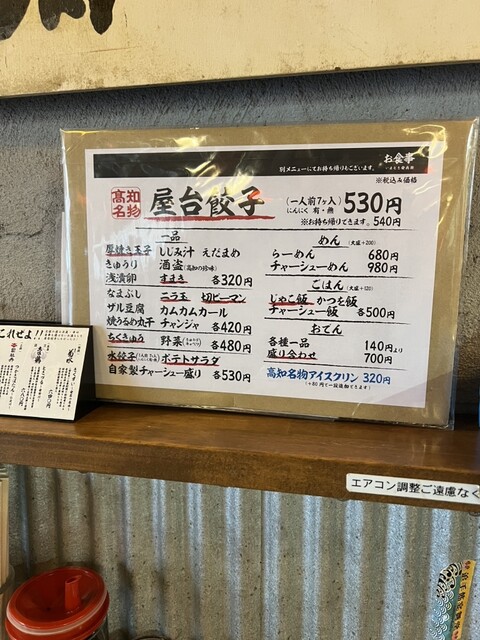 お食事
別メニューにてお持ち帰りもございます。
※税込み価格
高知名物 屋台餃子 (一人前7ヶ入) にんにく 有・無 530円
※お持ち帰りできます。540円
一品
厚焼き玉子 しじみ汁 えだまめ
きゅうり 酒盗(高知の珍味)
浅漬卵 すまき 各320円
なまぶし ニラ玉 切ピーマン
ザル豆腐 カムカムカール
焼うるめ丸干 チャンジャ 各420円
ちくきゅう 野菜 各480円
水餃子 ポテトサラダ
自家製チャーシュー盛り 各530円
めん (大盛+200)
らーめん 680円
チャーシューめん 980円
ごはん (大盛+120)
じゃこ飯 かつを飯
チャーシュー飯 各500円
おでん
各種一品 140円より
盛り合わせ 700円
高知名物アイスクリン 320円
これぜよ!!
エアコン調整ご遠慮なく